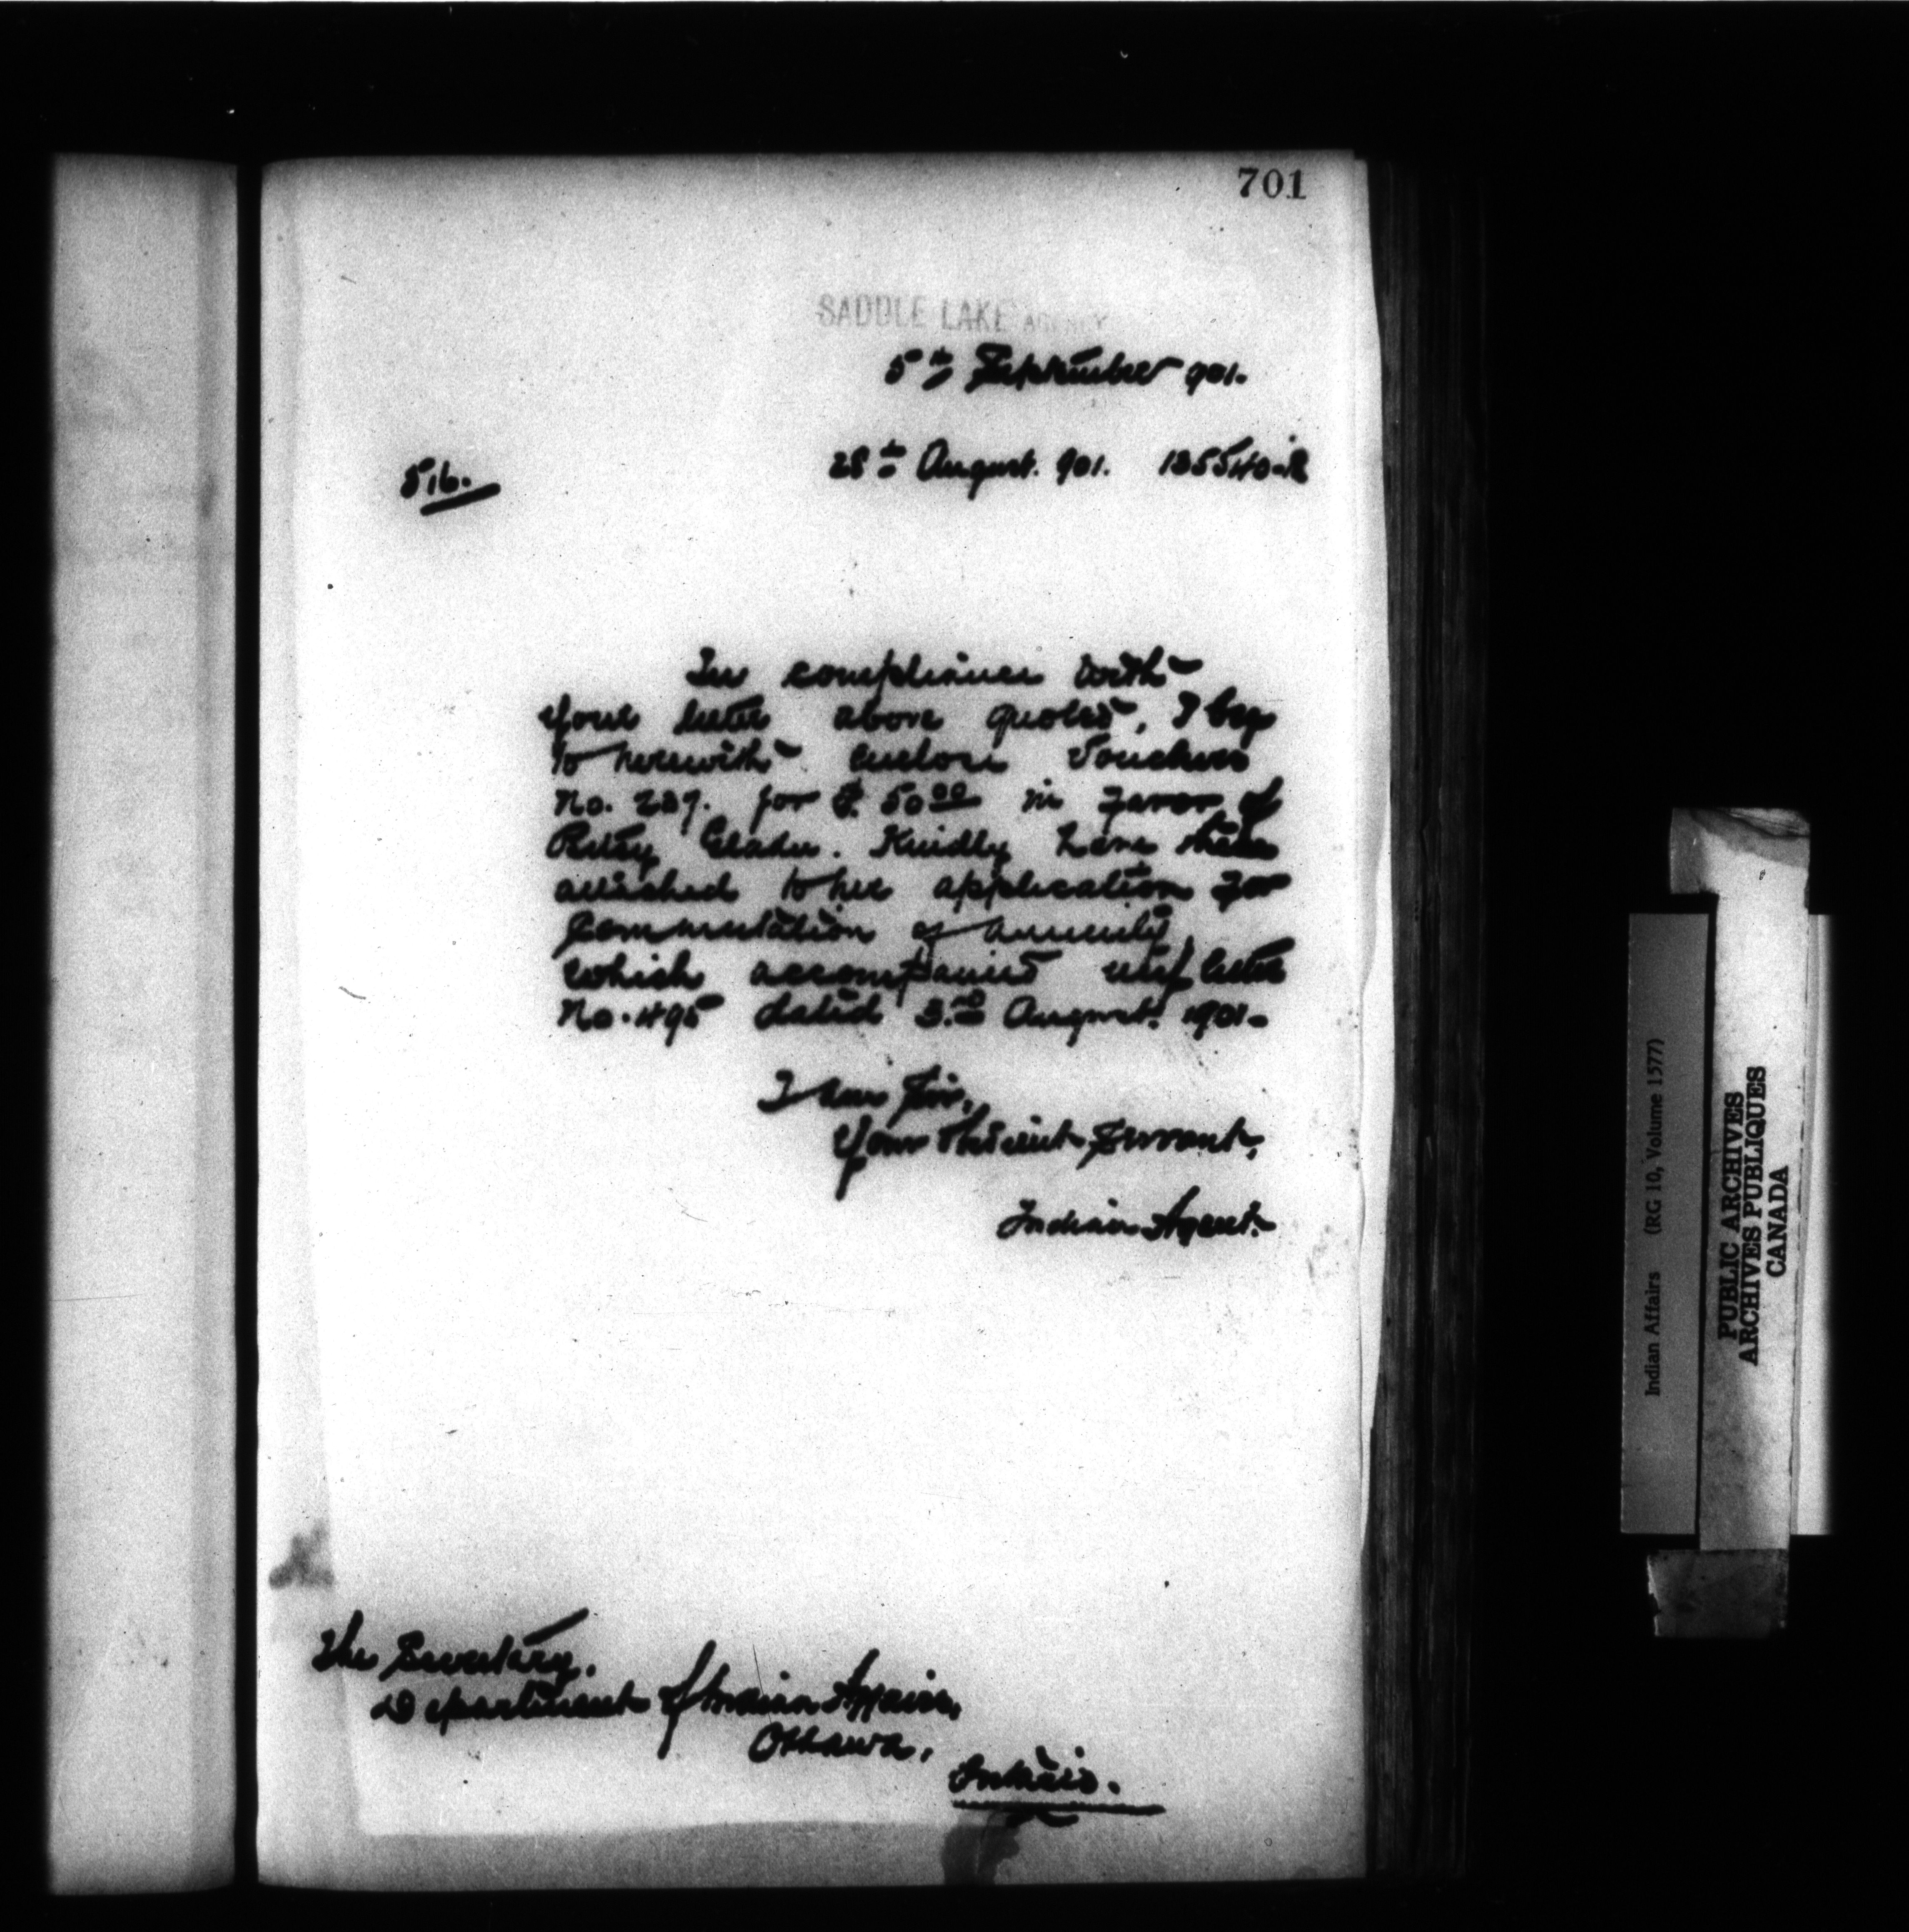 701
SADDLE LAKE AGENCY
5th September 901.
28th August. 901. 135540-R
516.
In compliance with
your letter above quoted, I beg
to herewith enclose Vouchers
No. 289. for $. 50 00 in favor of
Betsy Gladu. Kindly have these
attached to her application for
Commutation of annuity
which accompanied my letter
No. 495 dated 3rd August. 1901.
I am Sir,
Your Obedient Servant,
Indian Agent.
The Secretary.
Department of Indian Affairs,
Ottawa,
Ontario.
Indian Affairs (RG 10, Volume 1577)
PUBLIC ARCHIVES
ARCHIVES PUBLIQUES
CANADA